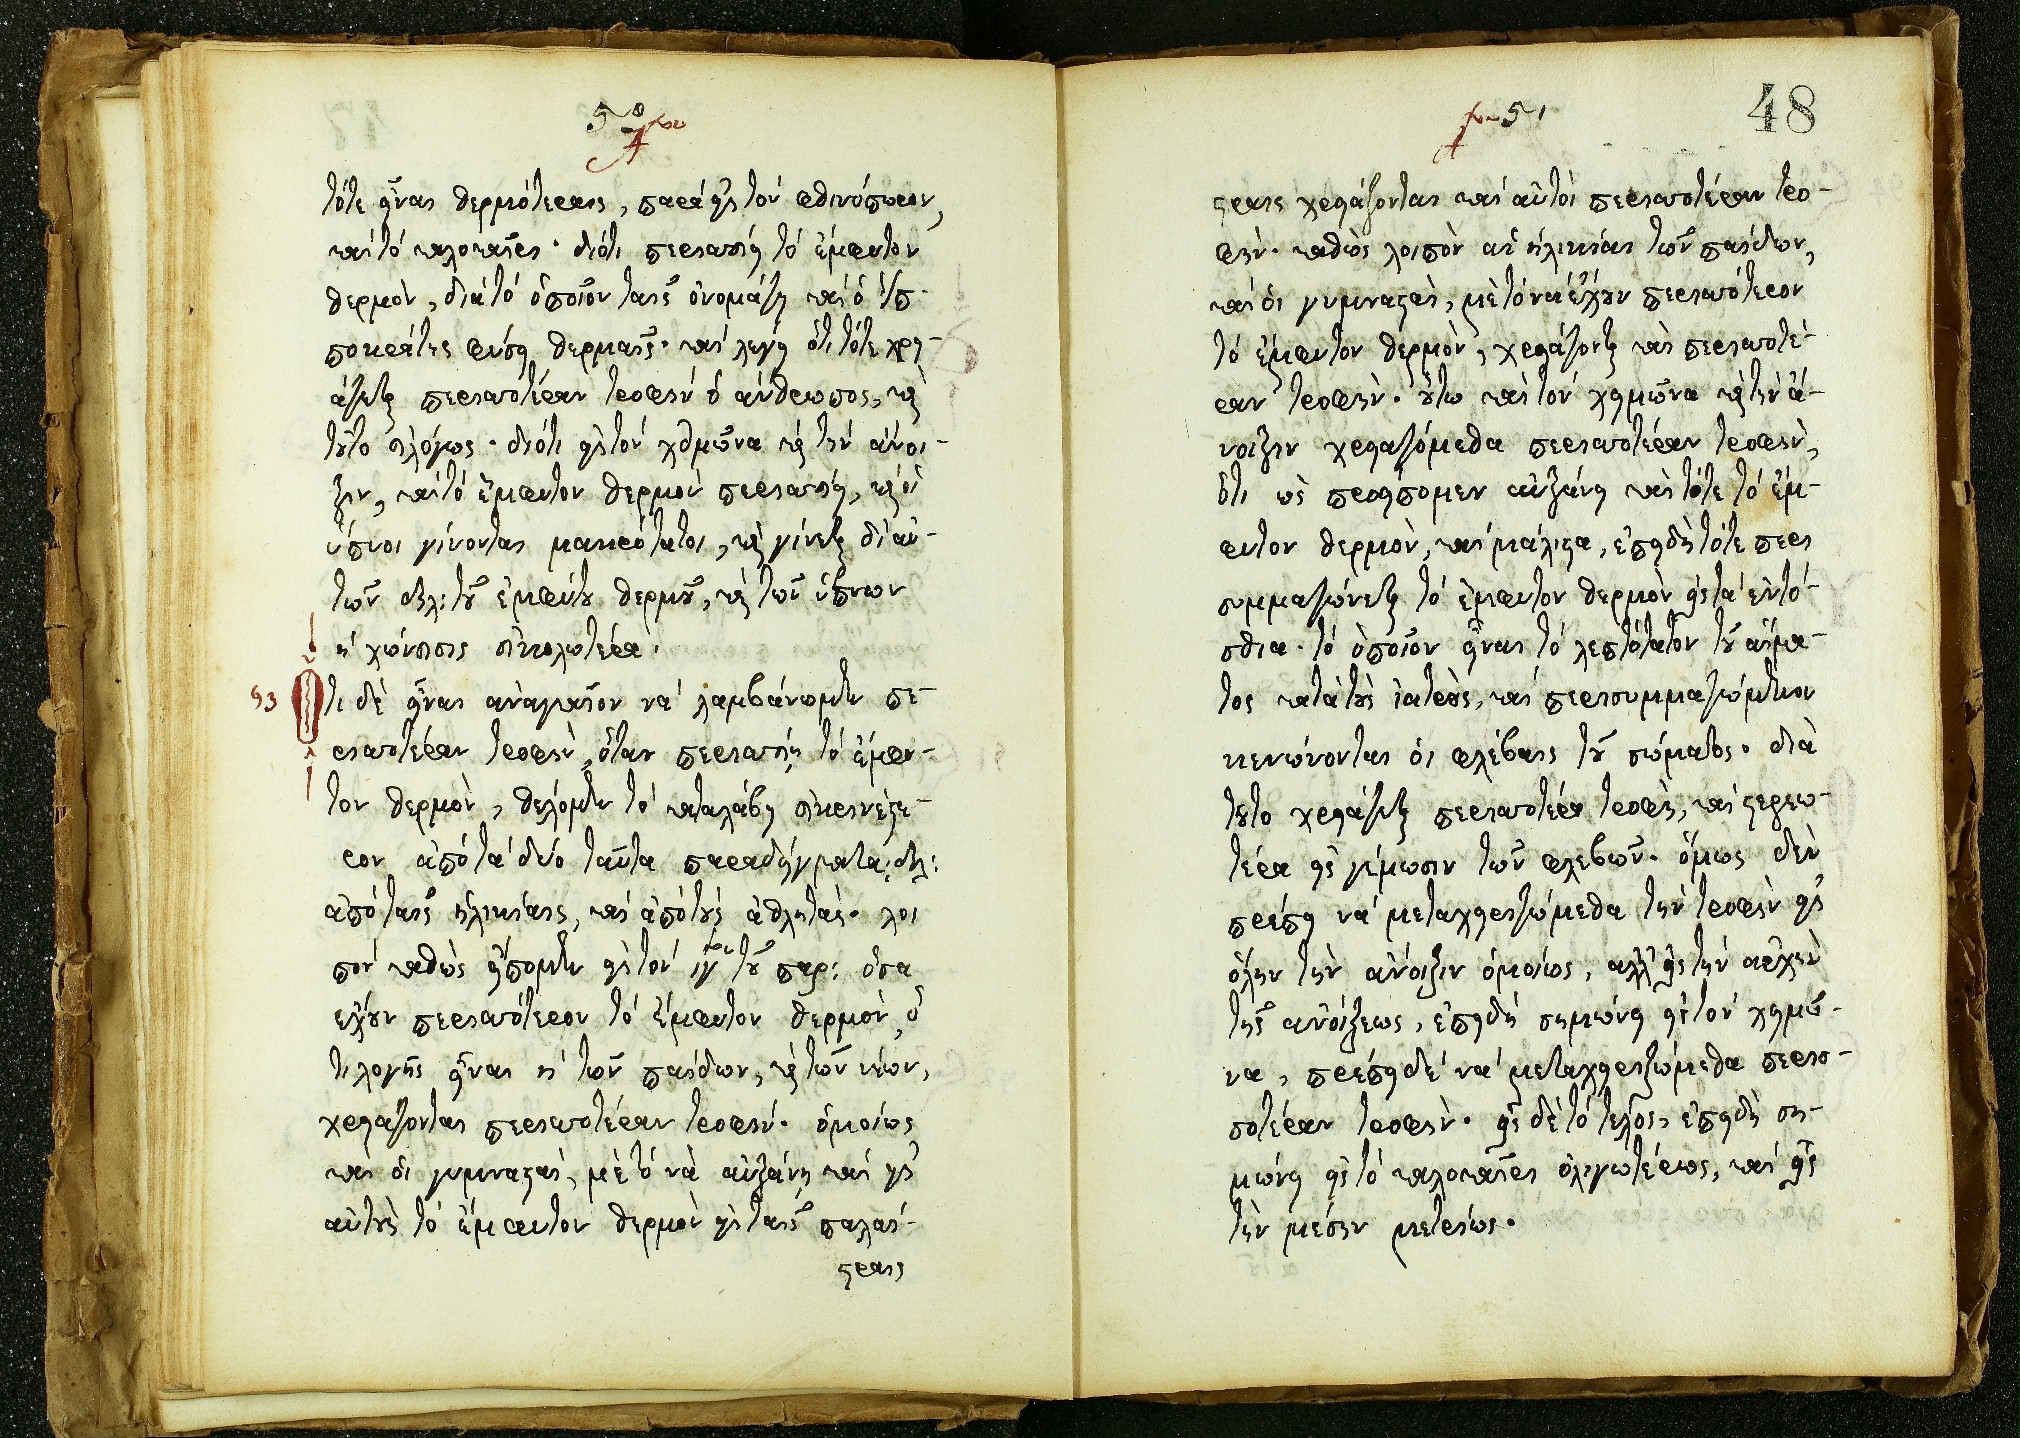 50
τότε εἶναι θερμότεραις, παρὰ εἰς τὸν φθινόπωρον,
καὶ τὸ καλοκαῖρι· διότι περισσεύει τὸ ἔμφυτον
θερμὸν, διὰ τὸ ὁποῖον ταῖς ὀνομάζει καὶ ὁ Ἱπ-
ποκράτης φύσει θερμαῖς· καὶ λέγει ὅτι τότε χρει-
άζεται περισσοτέραν τροφὴν ὁ ἄνθρωπος, καὶ
τοῦτο εὐλόγως· διότι εἰς τὸν χειμῶνα καὶ τὴν ἄνοι-
ξιν, καὶ τὸ ἔμφυτον θερμὸν περισσεύει, καὶ οἱ
ὕπνοι γίνονται μακρότατοι, καὶ γίνεται δι' αὐ-
τῶν δηλ: τοῦ ἐμφύτου θερμοῦ, καὶ τῶν ὕπνων
ἡ χώνευσις εὐκολωτέρα.
53 Ὅτι δὲ εἶναι ἀναγκαῖον νὰ λαμβάνωμεν πε-
ρισσοτέραν τροφὴν, ὅταν περισσεύῃ τὸ ἔμφυ-
τον θερμὸν, θέλομεν τὸ καταλάβῃ εὐκρινέστε-
ρον ἀπὸ τὰ δύο ταῦτα παραδείγματα: δηλ:
ἀπὸ ταῖς ἡλικίαις, καὶ ἀπὸ τοὺς ἀθλητάς· λοι
πὸν καθὼς εἴπομεν εἰς τὸν ιγ τοῦ παρ: ὅσα
ἔχουν περισσότερον τὸ ἔμφυτον θερμὸν, ὅ
τι λογῆς εἶναι ἡ τῶν παίδων, καὶ τῶν νέων,
χρειάζονται περισσοτέραν τροφήν. ὁμοίως
καὶ οἱ γυμνασταὶ, μὲ τὸ νὰ αὐξάνῃ καὶ εἰς
αὐτοὺς τὸ ἔμφυτον θερμὸν εἰς ταῖς παλαί-
στραις
51
48
στραις χρειάζονται καὶ αὐτοὶ περισσοτέραν τρο-
φήν. καθὼς λοιπὸν αἱ ἡλικίαι τῶν παίδων,
καὶ οἱ γυμνασταὶ, μὲ τὸ νὰ ἔχουν περισσότερον
τὸ ἔμφυτον θερμὸν, χρειάζονται καὶ περισσοτέ-
ραν τροφὴν. οὕτω καὶ τὸν χειμῶνα καὶ τὴν ἄ-
νοιξιν χρειαζόμεθα περισσοτέραν τροφὴν,
ὅτι ὡς προείπομεν αὐξάνει καὶ τότε τὸ ἔμ-
φυτον θερμὸν, καὶ μάλιστα, ἐπειδὴ τότε περι
συμμαζώνεται τὸ ἔμφυτον θερμὸν εἰς τὰ ἐντό-
σθια. τὸ ὁποῖον εἶναι τὸ λεπτότατον τοῦ αἵμα-
τος κατὰ τοὺς ἰατροὺς, καὶ περισυμμαζώμενον
κενώνονται οἱ φλέβαις τοῦ σώματος. διὰ
τοῦτο χρειάζεται περισσοτέρα τροφὴ, καὶ στερεω-
τέρα εἰς γέμωσιν τῶν φλεβῶν. ὅμως δὲν
πρέπει νὰ μεταχειριζώμεθα τὴν τροφὴν εἰς
ὅλην τὴν ἄνοιξιν ὁμοίως, ἀλλ' εἰς τὴν ἀρχὴν
τῆς ἀνοίξεως, ἐπειδὴ σημώνει εἰς τὸν χειμῶ-
να, πρέπει δὲ νὰ μεταχειριζώμεθα περισ-
σοτέραν τροφὴν. εἰς δὲ τὸ τέλος, ἐπειδὴ ση-
μώνει εἰς τὸ καλοκαῖρι ὀλιγωτέρως, καὶ εἰς
τὴν μέσην μετρίως.